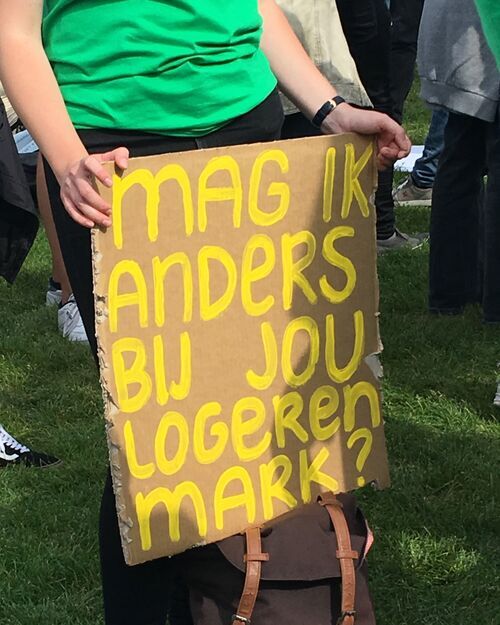 MAG IK
ANDERS
BIJ JOU
LOGEREN
MARK?